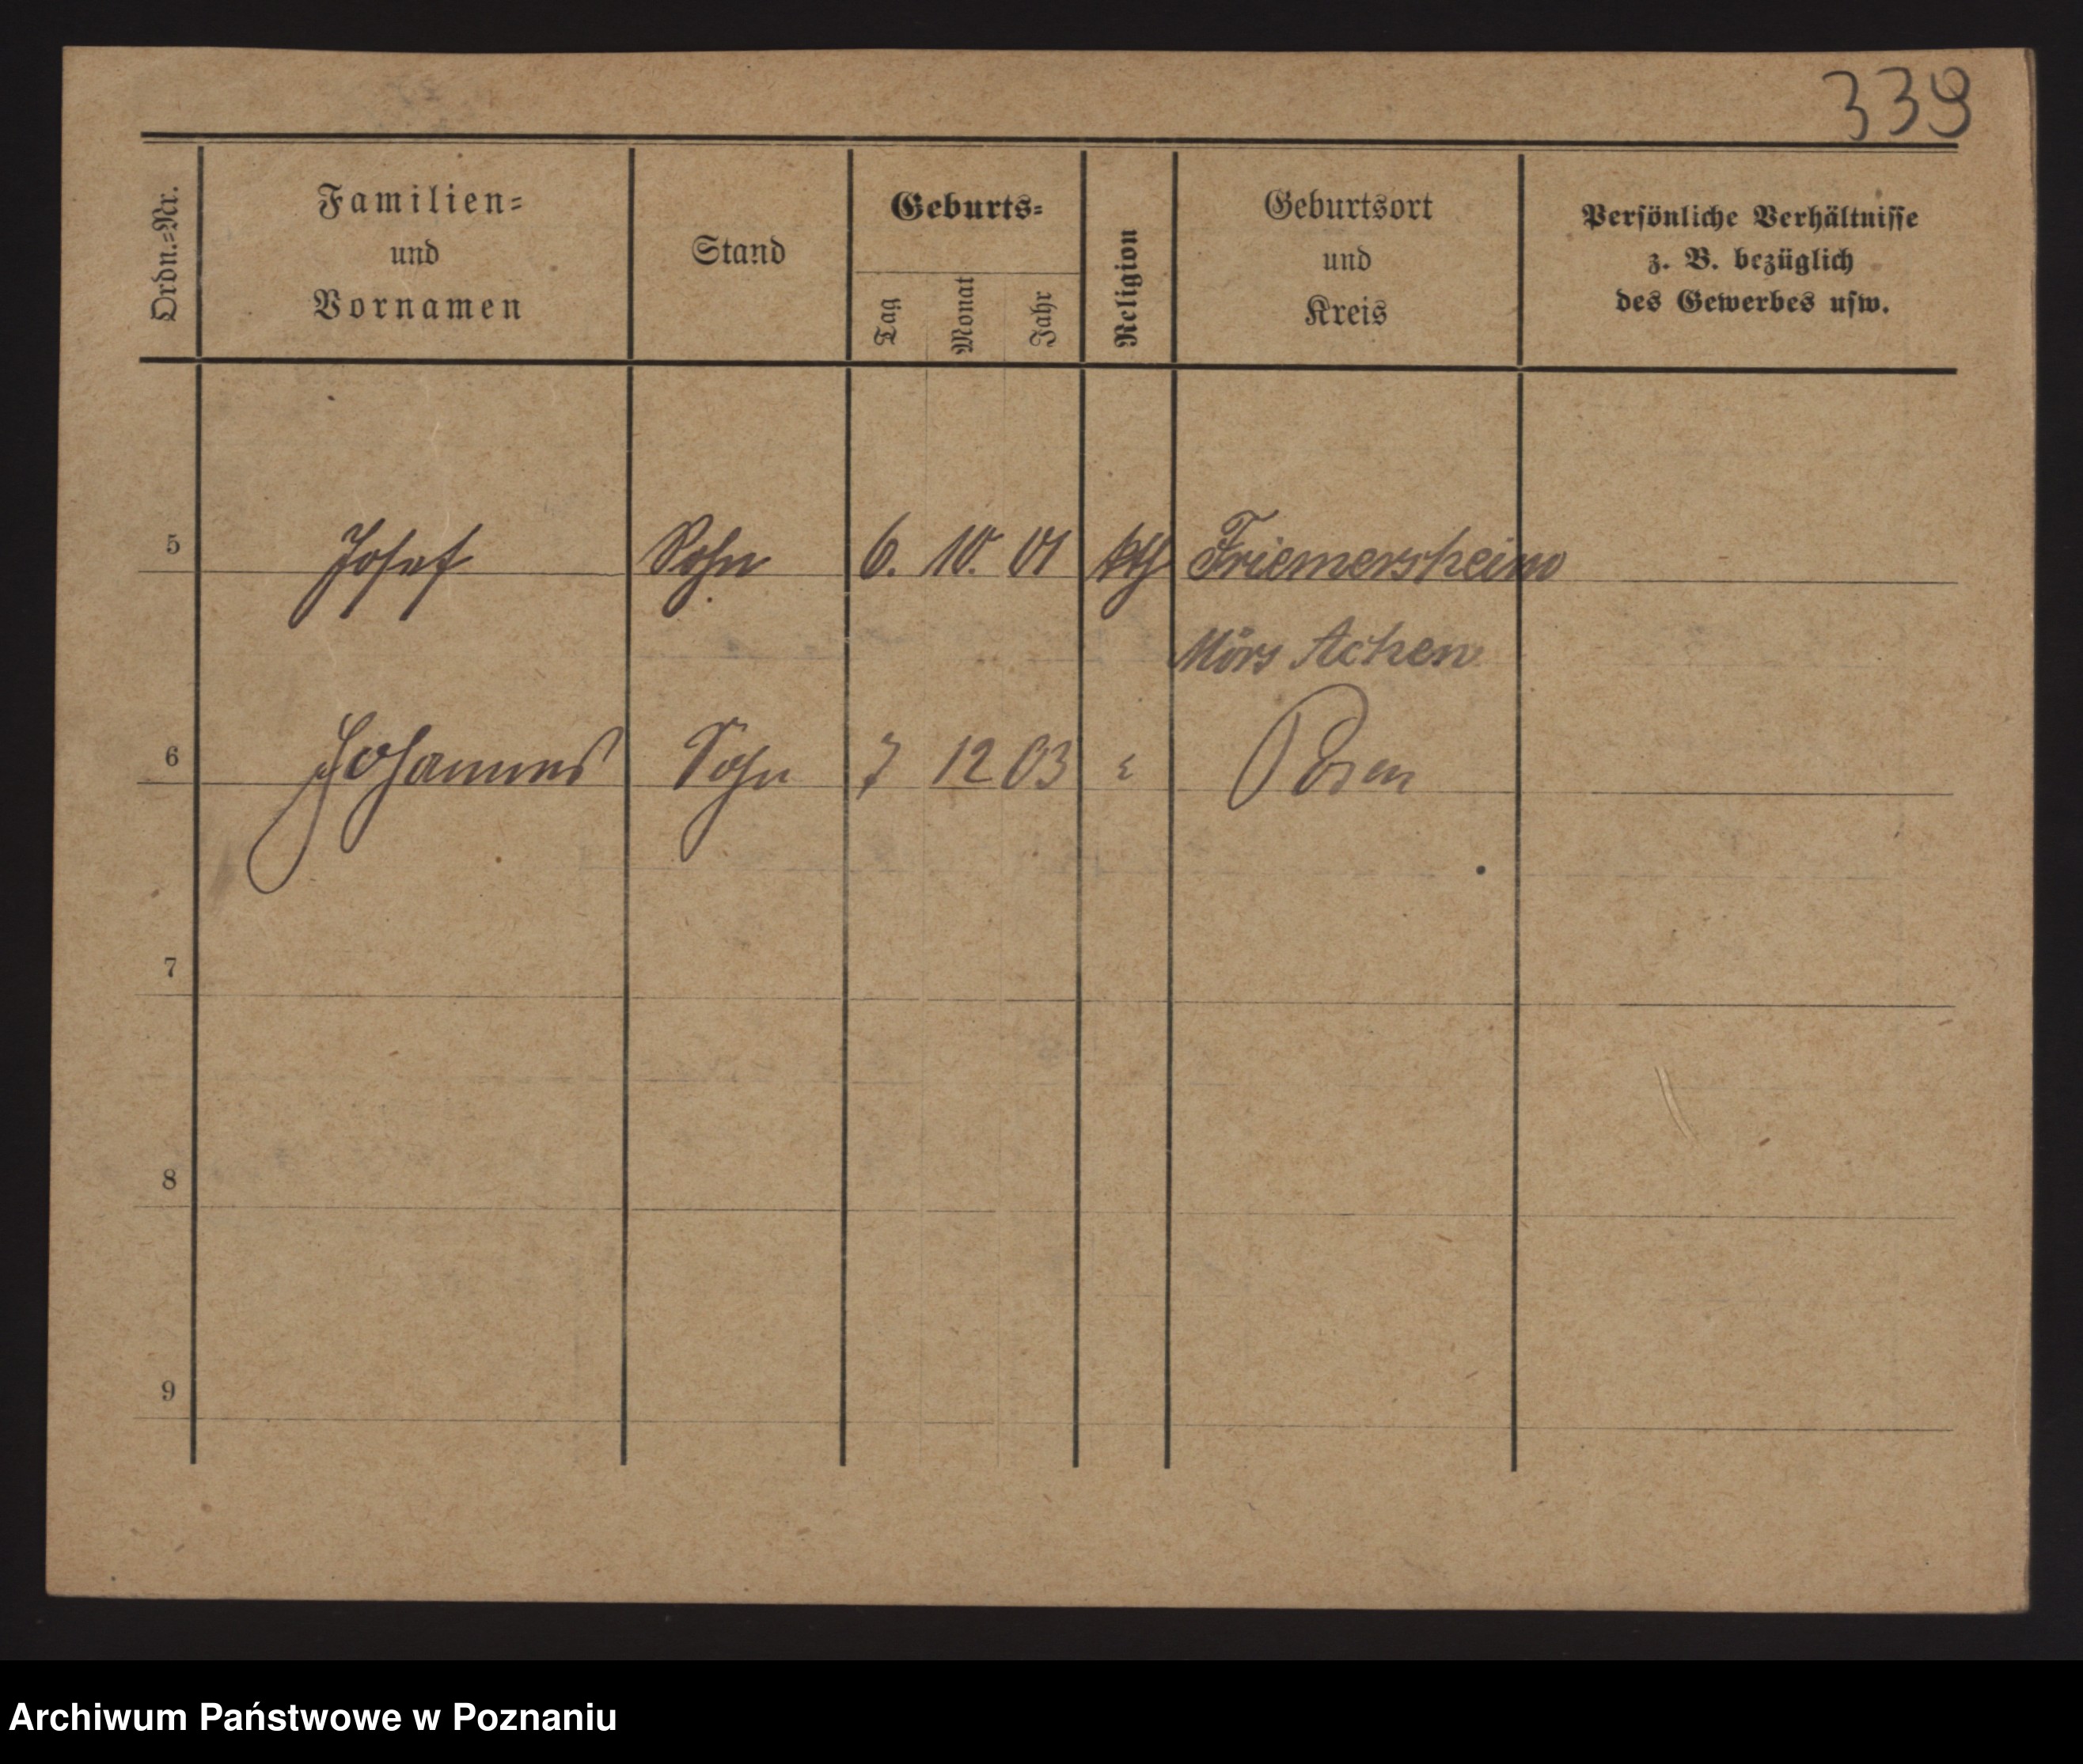 339
Ordn.-Nr.
Familien-
und
Vornamen
Stand
Geburts-
Tag
Monat
Jahr
Religion
Geburtsort
und
Kreis
Persönliche Verhältnisse
z. B. bezüglich
des Gewerbes usw.
5 Josef Sohn 6. 10. 01 kth Friemersheim
Mörs Achen
6 Johannes Sohn 7 12 03 Posen
7
8
9
Archiwum Państwowe w Poznaniu